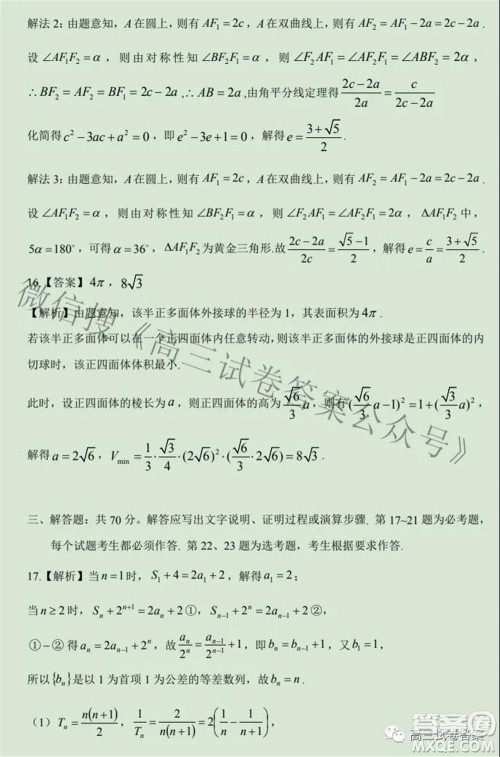 解法2:由题意知，A在圆上，则有 AF₁=2c，A在双曲线上，则有 AF₂=AF₁-2a=2c-2a .
设 ∠AF₁F₂=α ，则由对称性知∠BF₂F₁=α，则 ∠F₂AF₁=∠AF₂F₁=∠ABF₂=2α，
∴BF₂=AF₂=BF₁=2c-2a ,∴AB=2a ,由角平分线定理得 (2c-2a)/2a = c/(2c-2a)
化简得 c²-3ac+a²=0，即 e²-3e+1=0，解得 e=(3+√5)/2 .
解法3:由题意知，A在圆上，则有 AF₁=2c，A在双曲线上，则有 AF₂=AF₁-2a=2c-2a .
设 ∠AF₁F₂=α，则由对称性知∠BF₂F₁=α，则 ∠F₂AF₁=∠AF₂F₁=2α，ΔAF₁F₂中，
5α=180°，可得 α=36°，ΔAF₁F₂为黄金三角形.故 (2c-2a)/2c = (√5-1)/2，解得 e=c/a=(3+√5)/2 .
16.【答案】4π，8√3
【解析】由题意知，该半正多面体外接球的半径为1，其表面积为4π .
若该半正多面体可以在一个正四面体内任意转动，则该半正多面体的外接球是正四面体的内
切球时，该正四面体体积最小.
此时，设正四面体的棱长为a，则正四面体的高为 (√6/3)a，则有(√6/3 a-1)²=1+(√3/3 a)²，
解得 a=2√6，V_min=1/3·√3/4·(2√6)²·(√6/3·2√6)=8√3 .
三、解答题：共70分。解答应写出文字说明、证明过程或演算步骤. 第17~21题为必考题，
每个试题考生都必须作答. 第22、23题为选考题，考生根据要求作答.
17.【解析】当n=1时，S₁+4=2a₁+2，解得a₁=2；
当n≥2时，Sₙ+2ⁿ⁺¹=2aₙ+2①，Sₙ₋₁+2ⁿ=2aₙ₋₁+2②，
①-②得aₙ=2aₙ₋₁+2ⁿ，故 aₙ/2ⁿ = aₙ₋₁/2ⁿ⁻¹ +1，即bₙ=bₙ₋₁+1，又b₁=1，
所以{bₙ}是以1为首项1为公差的等差数列，故bₙ=n .
（1）Tₙ=n(n+1)/2，1/Tₙ=2/(n(n+1))=2(1/n-1/(n+1))，
微信搜《高三试卷答案公众号》
高三试卷答案
答案圈
MXQE.COM